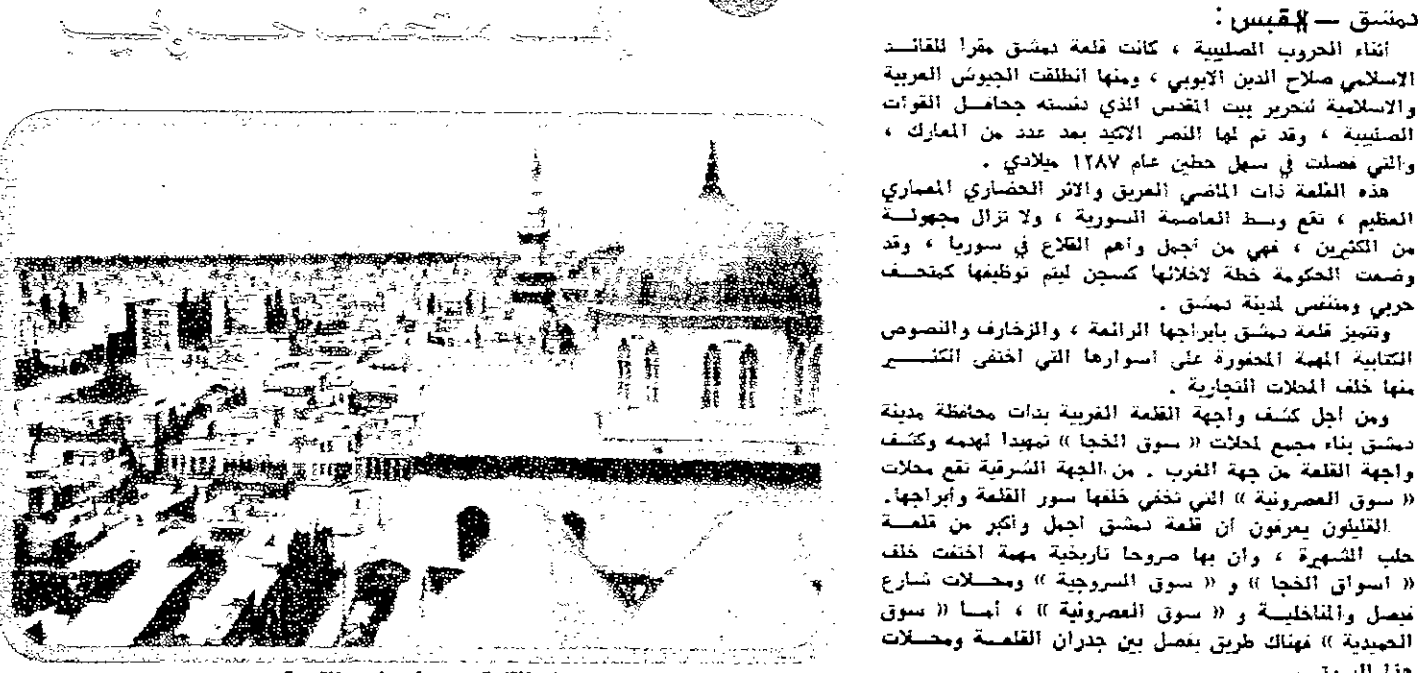 متحف حربي
دمشق — القبس :
أثناء الحروب الصليبية ، كانت قلعة دمشق مقرا للقائد
الاسلامي صلاح الدين الايوبي ، ومنها انطلقت الجيوش العربية
والاسلامية لتحرير بيت المقدس الذي دنسته جحافل القوات
الصليبية ، وقد تم لها النصر الاكيد بعد عدد من المعارك ،
والتي فصلت في سهل حطين عام ١٢٨٧ ميلادي .
هذه القلعة ذات الماضي العريق والاثر الحضاري المعماري
العظيم ، تقع وسط العاصمة السورية ، ولا تزال مجهولة
من الكثيرين ، فهي من أجمل وأهم القلاع في سوريا ، وقد
وضعت الحكومة خطة لاخلائها كسجن ليتم توظيفها كمتحف
حربي ومتنفس لمدينة دمشق .
وتتميز قلعة دمشق بابراجها الرائعة ، والزخارف والنصوص
الكتابية المهمة المحفورة على اسوارها التي اختفى الكثير
منها خلف المحلات التجارية .
ومن أجل كشف واجهة القلعة الغربية بدات محافظة مدينة
دمشق بناء مجمع لمحلات « سوق الخجا » تمهيدا لهدمه وكشف
واجهة القلعة من جهة الغرب . من الجهة الشرقية تقع محلات
« سوق العصرونية » التي تخفي خلفها سور القلعة وأبراجها.
القليلون يعرفون ان قلعة دمشق اجمل وأكبر من قلعة
حلب الشهيرة ، وان بها صروحا تاريخية مهمة اختفت خلف
« اسواق الخجا » و « سوق السروجية » ومحلات شارع
فيصل والمناخلية و « سوق العصرونية » ، أما « سوق
الحميدية » فهناك طريق يفصل بين جدران القلعة ومحلات